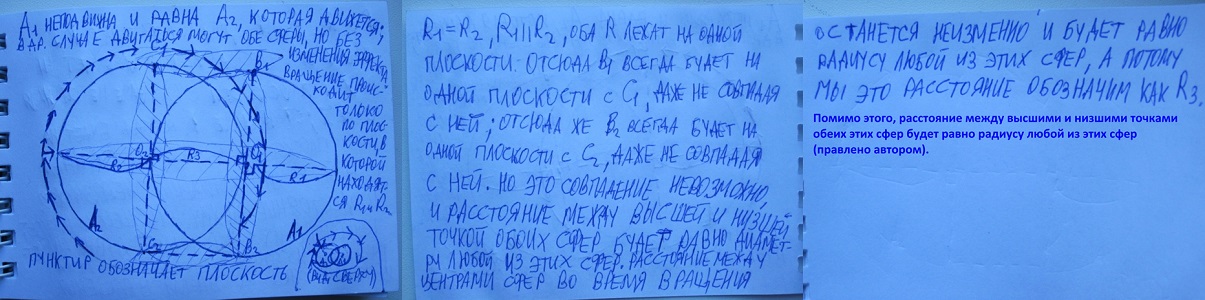 A1 НЕПОДВИЖНА И РАВНА A2, КОТОРАЯ ДВИЖЕТСЯ;
В ДР. СЛУЧАЕ ДВИГАТЬСЯ МОГУТ ОБЕ СФЕРЫ, НО БЕЗ
C1
B1
ИЗМЕНЕНИЯ ЭФФЕКТА.
ВРАЩЕНИЕ ПРОИС-
ХОДИТ
ТОЛЬКО
ПО ПЛОС-
КОСТИ, В
КОТОРОЙ
НАХОДЯТ-
СЯ R1 и R2
O2
R3
O1
R2
R1
A2
A1
C2
B2
ПУНКТИР ОБОЗНАЧАЕТ ПЛОСКОСТЬ
(ВИД СВЕРХУ)
R1=R2, R1||R2, ОБА R ЛЕЖАТ НА ОДНОЙ
ПЛОСКОСТИ. ОТСЮДА B1 ВСЕГДА БУДЕТ НА
ОДНОЙ ПЛОСКОСТИ С C1, ДАЖЕ НЕ СОВПАДАЯ
С НЕЙ; ОТСЮДА ЖЕ B2 ВСЕГДА БУДЕТ НА
ОДНОЙ ПЛОСКОСТИ С C2, ДАЖЕ НЕ СОВПАДАЯ
С НЕЙ. НО ЭТО СОВПАДЕНИЕ НЕВОЗМОЖНО,
И РАССТОЯНИЕ МЕЖДУ ВЫСШЕЙ И НИЗШЕЙ
ТОЧКОЙ ОБОИХ СФЕР БУДЕТ РАВНО ДИАМЕТ-
РУ ЛЮБОЙ ИЗ ЭТИХ СФЕР. РАССТОЯНИЕ МЕЖДУ
ЦЕНТРАМИ СФЕР ВО ВРЕМЯ ВРАЩЕНИЯ
ОСТАНЕТСЯ НЕИЗМЕННО И БУДЕТ РАВНО
РАДИУСУ ЛЮБОЙ ИЗ ЭТИХ СФЕР, А ПОТОМУ
МЫ ЭТО РАССТОЯНИЕ ОБОЗНАЧИМ КАК R3.
Помимо этого, расстояние между высшими и низшими точками
обеих этих сфер будет равно радиусу любой из этих сфер
(правлено автором).